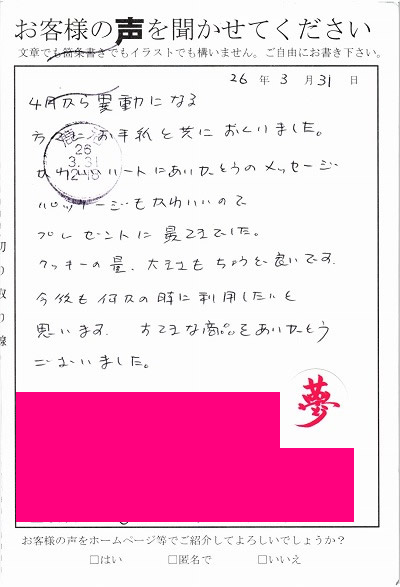 お客様の声を聞かせてください
文章でも箇条書きでもイラストでも構いません。ご自由にお書き下さい。
26 年 3 月 31 日
4月から異動になる
方々に お手紙と共に おくりました。
かわいいハートにありがとうのメッセージ
パッケージもかわいいので
プレゼントに最てきでした。
クッキーの量、大きさもちょうど良いです。
今後も何かの時に利用したいと
思います。 すてきな商品をありがとう
ございました。
26
3.31
夢
切り取り線
お客様の声をホームページ等でご紹介してよろしいでしょうか？
□はい □匿名で □いいえ